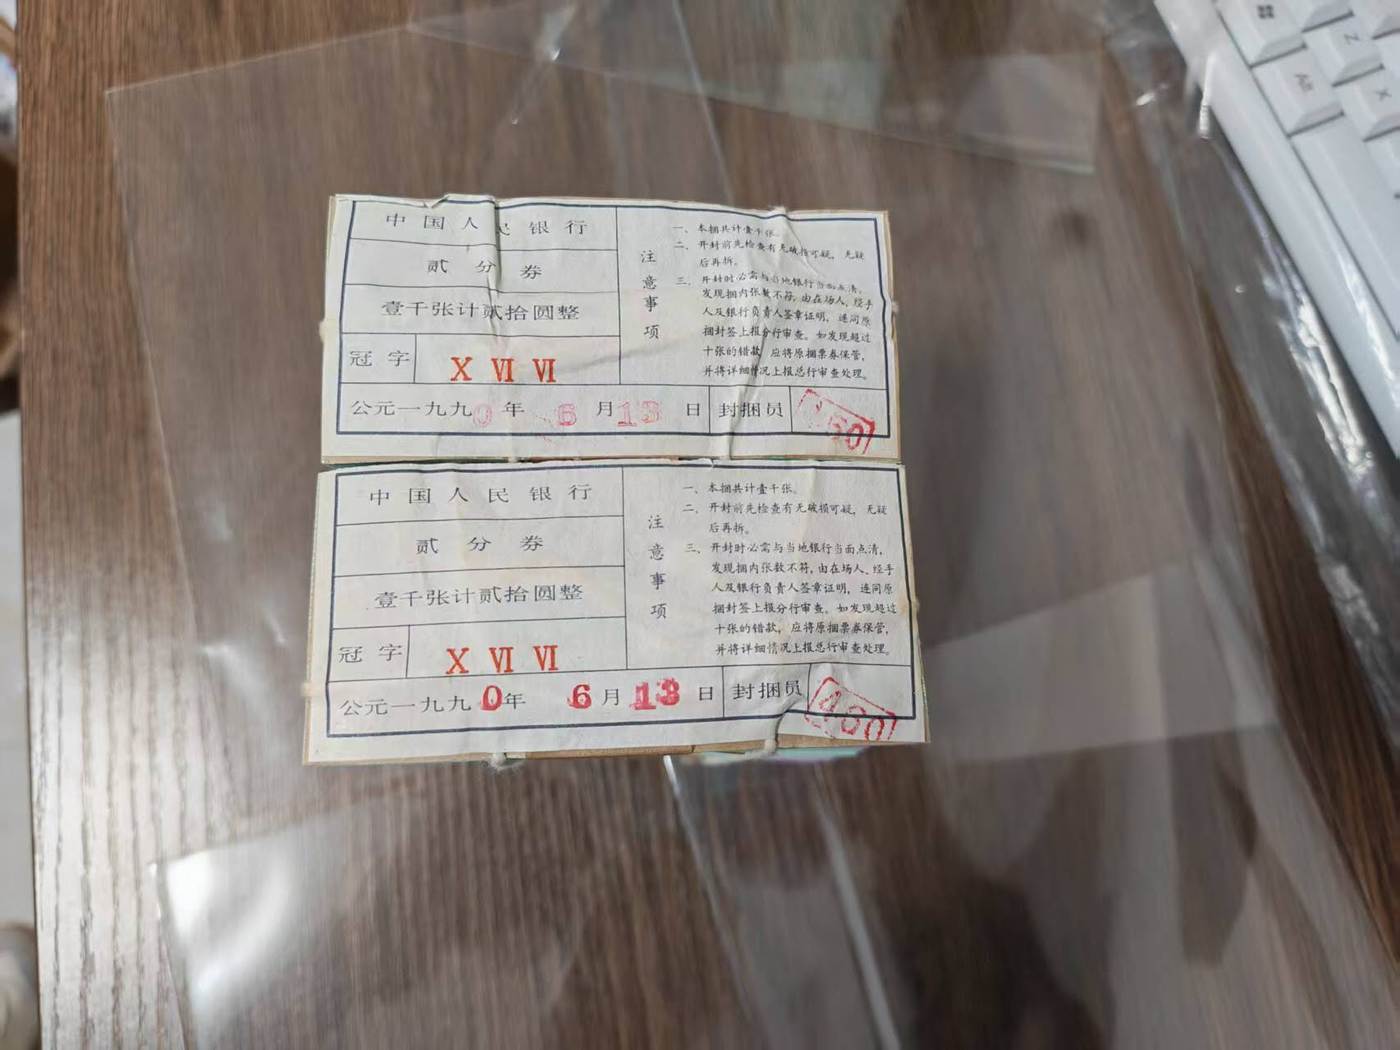 中国人民银行
贰分券
壹千张计贰拾圆整
冠字 X VI VI
公元一九九0年 6月13日 封捆员
注意事项
一、本捆共计壹千张。
二、开封前先检查有无破损可疑，无疑
后再拆。
三、开封时必需与当地银行当面点清，
发现捆内张数不符，由在场人、经手
人及银行负责人签章证明，连同原
捆封签上报分行审查。如发现超过
十张的错款，应将原捆票券保管，
并将详细情况上报总行审查处理。
中国人民银行
贰分券
壹千张计贰拾圆整
冠字 X VI VI
公元一九九0年 6月13日 封捆员
注意事项
一、本捆共计壹千张。
二、开封前先检查有无破损可疑，无疑
后再拆。
三、开封时必需与当地银行当面点清，
发现捆内张数不符，由在场人、经手
人及银行负责人签章证明，连同原
捆封签上报分行审查。如发现超过
十张的错款，应将原捆票券保管，
并将详细情况上报总行审查处理。
Z
Alt
X